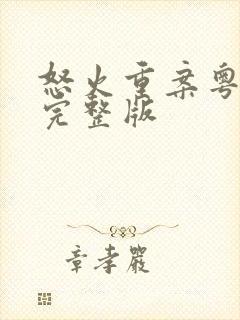 怒火重案粤
完整版
章孝严